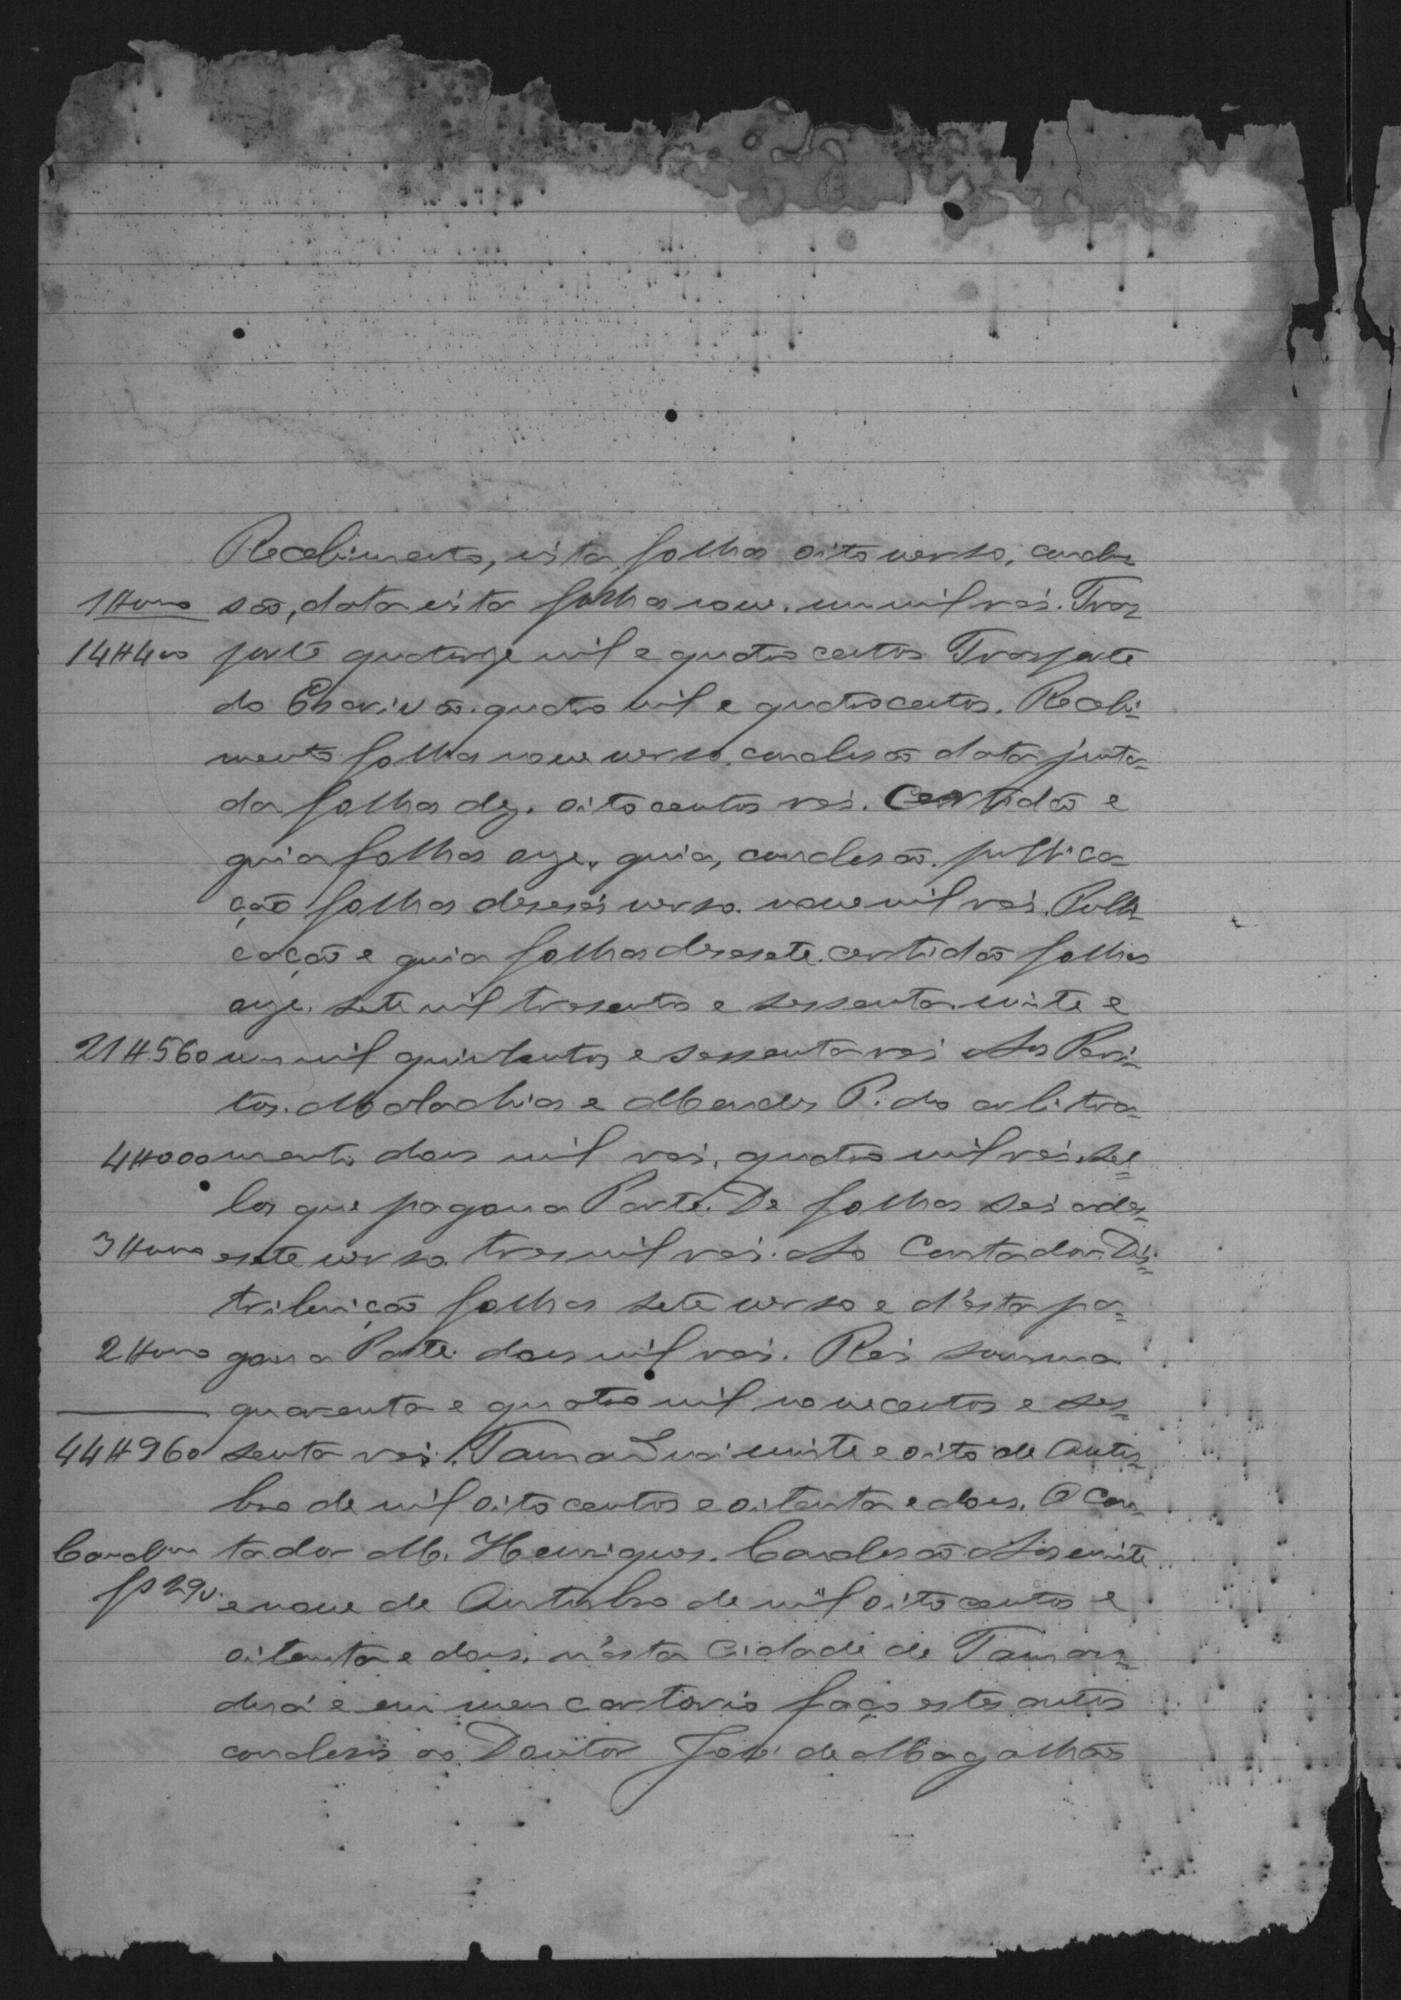 Recebimento, vista, folhas oito verso, conclu
1#000 são, data vista folhas nove. um mil reis. Trans
14#400 porte quatorze mil e quatro centos Transporte
do Escrivão. quatro mil e quatrocentos. Recebi-
mento folhas nove verso. conclusão data junta-
da folhas dez. oito centos reis. Certidão e
guia folhas onze. guia, conclusão. publica-
ção folhas deseseis verso. nove mil reis. Publi
cação e guia folhas desesete. certidão folhas
onze. sete mil tresentos e sessenta. vinte e
21#560 um mil quinhentos e sessenta reis Aos Peri-
tos. Malachias e Mendes P. do arbitra-
4#000 mento dous mil reis, quatro mil reis. Sel=
los que pagou a Parte. De folhas seis a des=
3#000 esete verso. tres mil reis. Ao Contador. Dis=
tribuição folhas sete verso e d'esta pa-
2#000 gou a Parte. dous mil reis. Reis somma
quarenta e quatro mil novecentos e ses=
44#960 senta reis. Tamanduá vinte e oito de Outu=
bro de mil oito centos e oitenta e dous. O Con=
Conclum tador M. Henriques. Conclusão Aos vinte
fs 29v. e nove de Outubro de mil oito centos e
oitenta e dous, n'esta Cidade de Taman=
duá e em meu cartorio faço estes autos
conclusos ao Doutor José de Magalhães